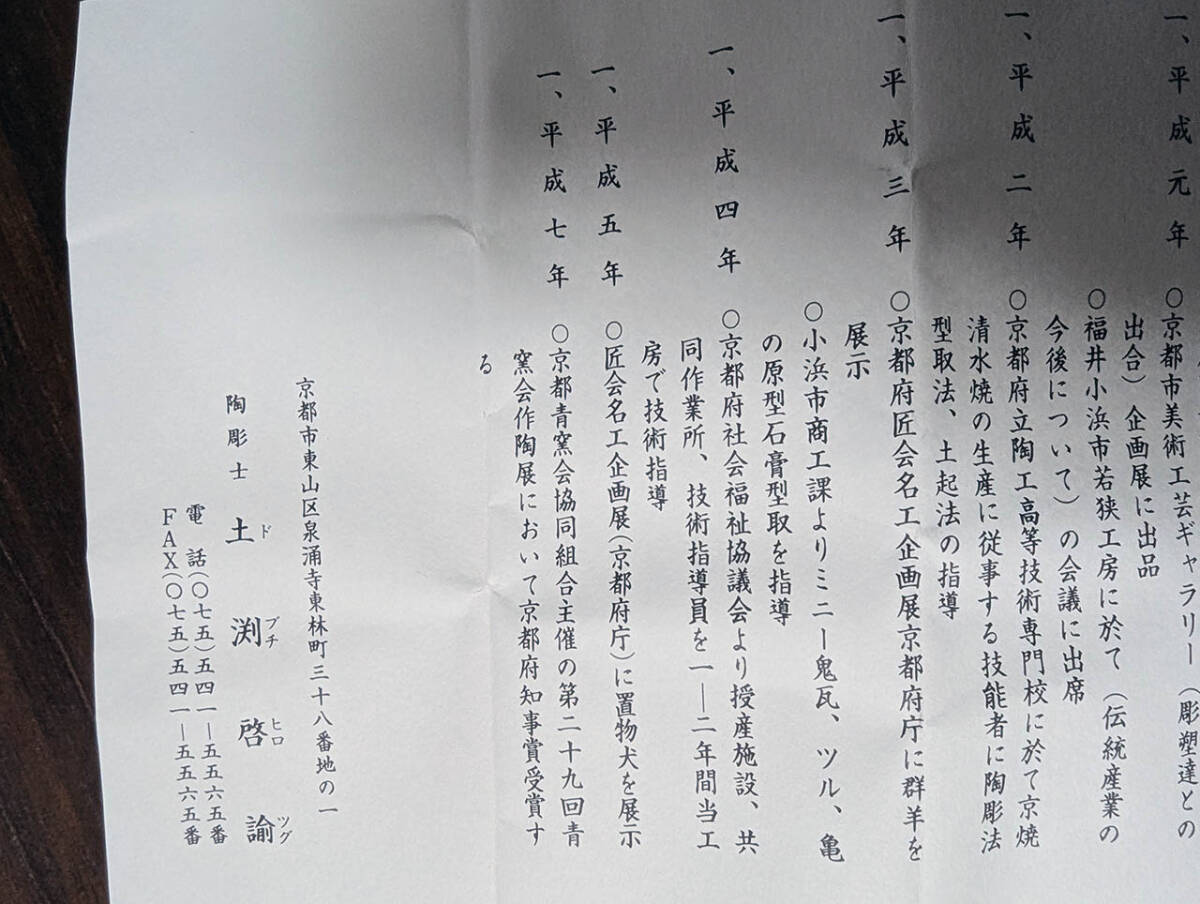 一、平成元年　○京都市美術工芸ギャラリー（彫塑達との
出合）企画展に出品
○福井小浜市若狭工房に於て（伝統産業の
今後について）の会議に出席
一、平成二年　○京都府立陶工高等技術専門校に於て京焼
清水焼の生産に従事する技能者に陶彫法
型取法、土起法の指導
一、平成三年　○京都府匠会名工企画展京都府庁に群羊を
展示
○小浜市商工課よりミニー鬼瓦、ツル、亀
の原型石膏型取を指導
一、平成四年　○京都府社会福祉協議会より授産施設、共
同作業所、技術指導員を一―二年間当工
房で技術指導
一、平成五年　○匠会名工企画展（京都府庁）に置物犬を展示
一、平成七年　○京都青窯会協同組合主催の第二十九回青
窯会作陶展において京都府知事賞受賞す
る
京都市東山区泉涌寺東林町三十八番地の一
陶彫士　土渕啓諭
ドブチヒロツグ
電話（〇七五）五四一―五五六五番
ＦＡＸ（〇七五）五四一―五五六五番